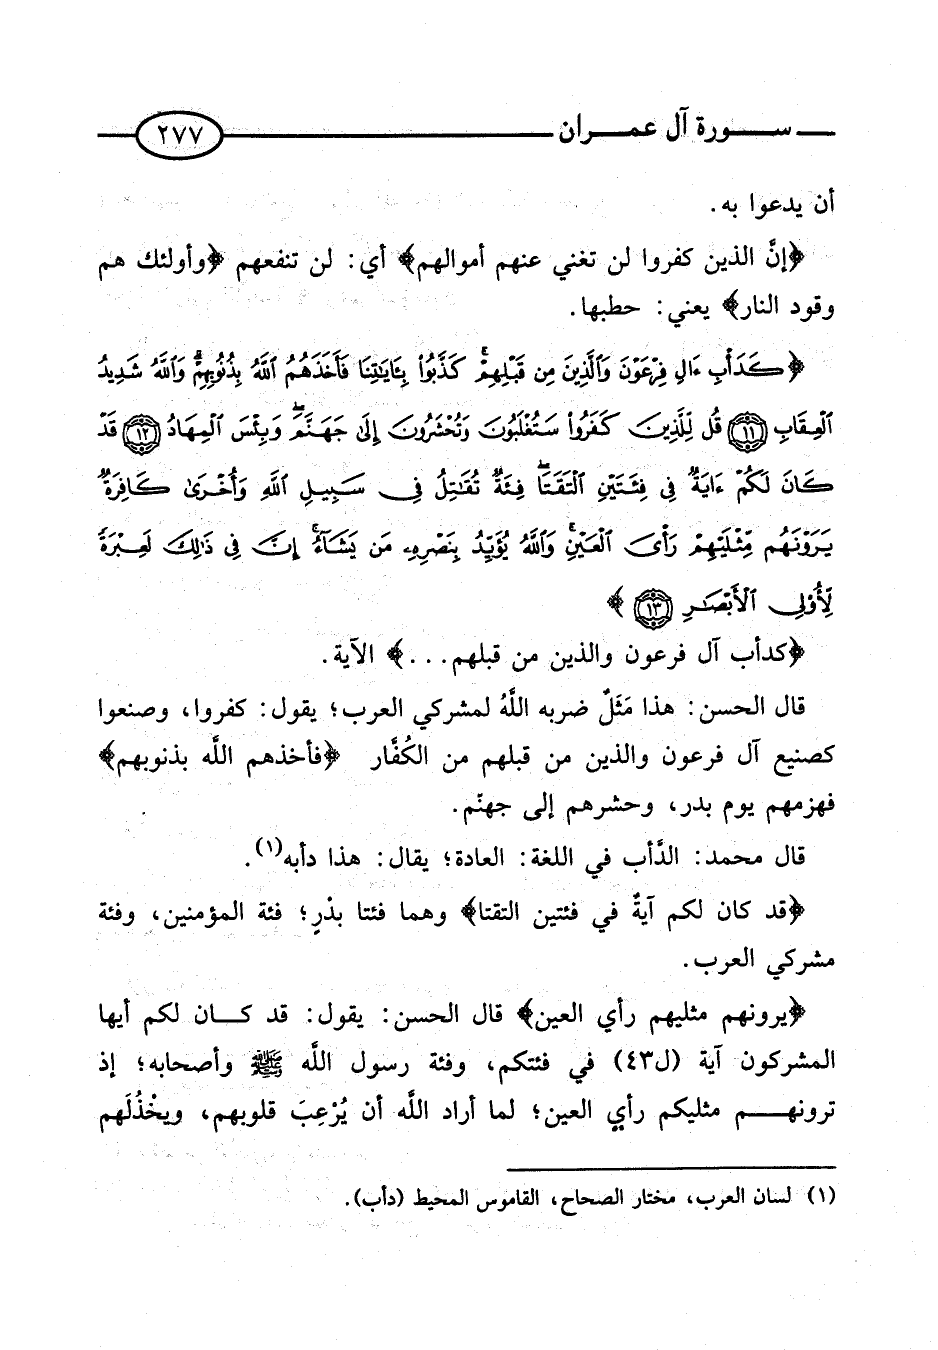 سورة آل عمران ٢٧٧
أن يدعوا به.
﴿إنَّ الذين كفروا لن تغني عنهم أموالهم﴾ أي: لن تنفعهم ﴿وأولئك هم
وقود النار﴾ يعني: حطبها.
﴿كَدَأْبِ ءَالِ فِرْعَوْنَ وَٱلَّذِينَ مِن قَبْلِهِمْ ۚ كَذَّبُوا۟ بِـَٔايَـٰتِنَا فَأَخَذَهُمُ ٱللَّهُ بِذُنُوبِهِمْ ۗ وَٱللَّهُ شَدِيدُ
ٱلْعِقَابِ ١١ قُل لِّلَّذِينَ كَفَرُوا۟ سَتُغْلَبُونَ وَتُحْشَرُونَ إِلَىٰ جَهَنَّمَ ۚ وَبِئْسَ ٱلْمِهَادُ ١٢ قَدْ
كَانَ لَكُمْ ءَايَةٌ فِى فِئَتَيْنِ ٱلْتَقَتَا ۖ فِئَةٌ تُقَـٰتِلُ فِى سَبِيلِ ٱللَّهِ وَأُخْرَىٰ كَافِرَةٌ
يَرَوْنَهُم مِّثْلَيْهِمْ رَأْىَ ٱلْعَيْنِ ۚ وَٱللَّهُ يُؤَيِّدُ بِنَصْرِهِۦ مَن يَشَآءُ ۗ إِنَّ فِى ذَٰلِكَ لَعِبْرَةً
لِّأُو۟لِى ٱلْأَبْصَـٰرِ ١٣ ﴾
﴿كدأب آل فرعون والذين من قبلهم...﴾ الآية.
قال الحسن: هذا مَثَلٌ ضربه اللَّهُ لمشركي العرب؛ يقول: كفروا، وصنعوا
كصنيع آل فرعون والذين من قبلهم من الكُفَّار ﴿فأخذهم اللَّه بذنوبهم﴾
فهزمهم يوم بدر، وحشرهم إلى جهنّم.
قال محمد: الدَّأب في اللغة: العادة؛ يقال: هذا دأبه(١).
﴿قد كان لكم آيةٌ في فئتين التقتا﴾ وهما فئتا بدْرٍ؛ فئة المؤمنين، وفئة
مشركي العرب.
﴿يرونهم مثليهم رأي العين﴾ قال الحسن: يقول: قد كان لكم أيها
المشركون آية (ل٤٣) في فئتكم، وفئة رسول اللَّه ﷺ وأصحابه؛ إذ
ترونهم مثليكم رأي العين؛ لما أراد اللَّه أن يُرْعِبَ قلوبهم، ويخْذُلَهم
(١) لسان العرب، مختار الصحاح، القاموس المحيط (دأب).